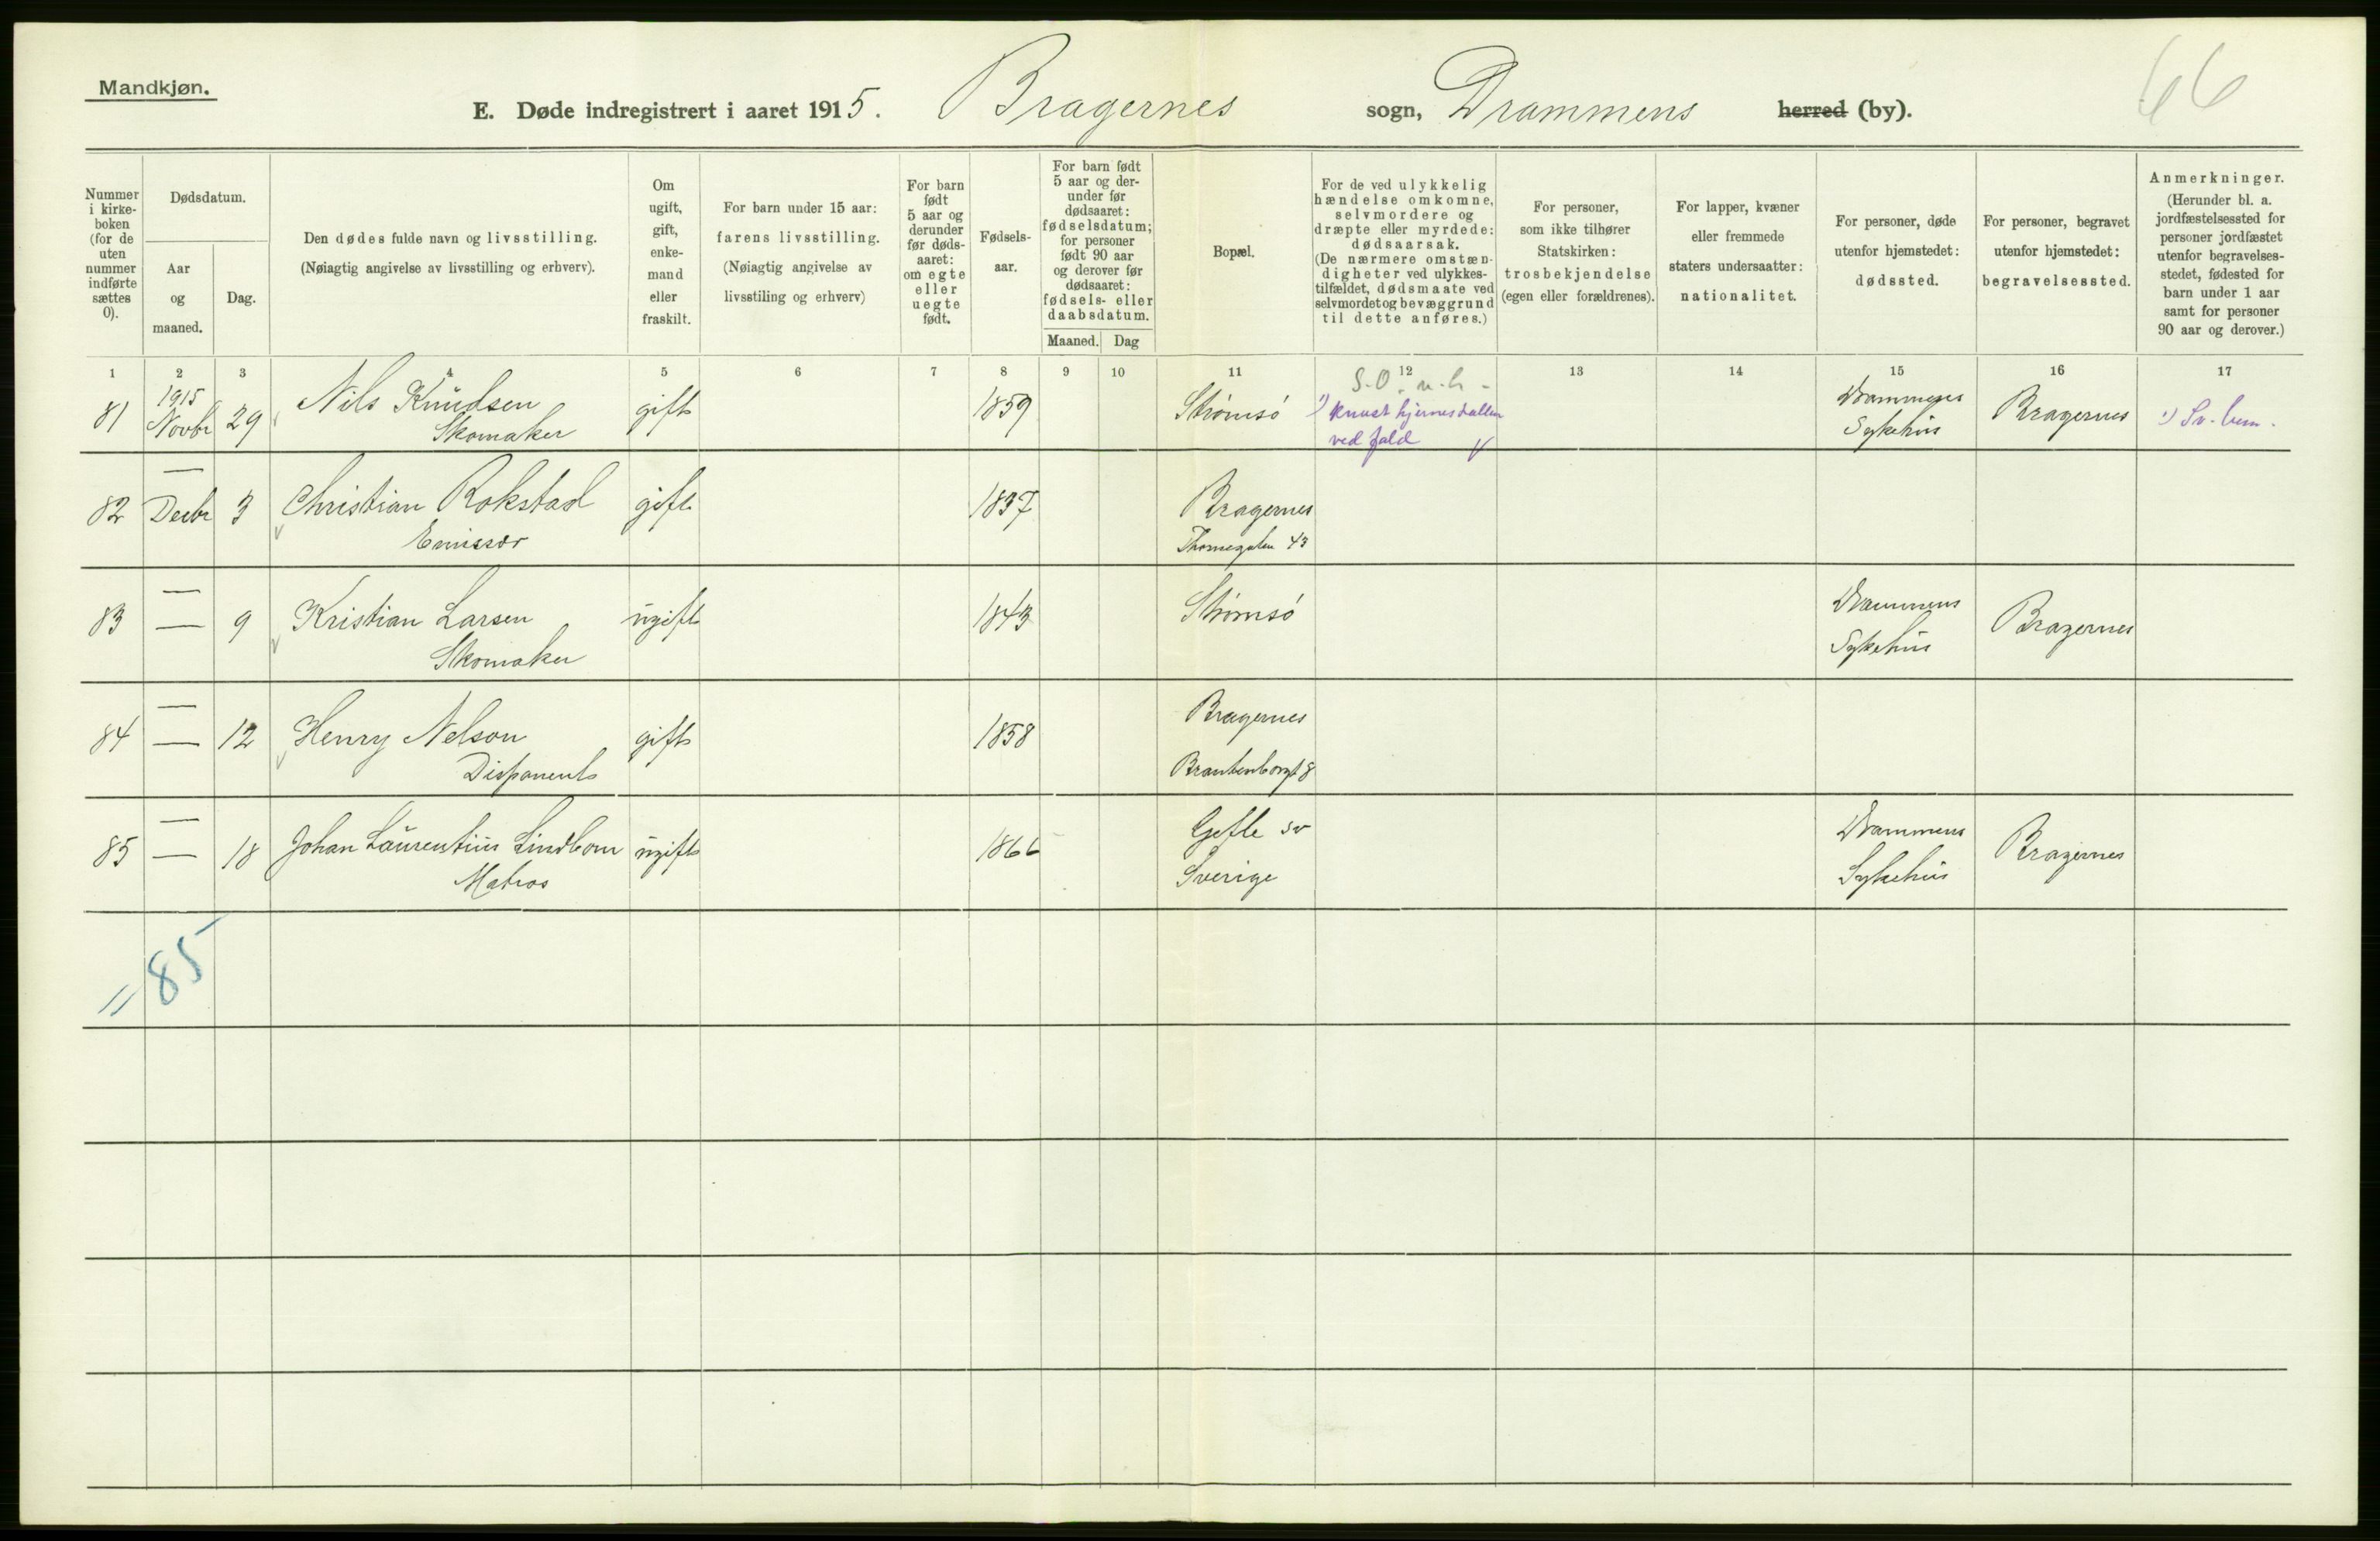 Mandkjøn.
66
E. Døde indregistrert i aaret 1915. Bragernes sogn, Drammens herred (by).
Nummer i kirke-boken (for de uten nummer indførte sættes 0).
Dødsdatum.
Aar og maaned.
Dag.
Den dødes fulde navn og livsstilling.
(Nøiagtig angivelse av livsstilling og erhverv).
Om ugift, gift, enke-mand eller fraskilt.
For barn under 15 aar:
farens livsstilling.
(Nøiagtig angivelse av
livsstiling og erhverv)
For barn født 5 aar og derunder før døds-aaret: om egte eller uegte født.
Fødsels-aar.
For barn født 5 aar og der-under før dødsaaret: fødselsdatum; for personer født 90 aar og derover før dødsaaret: fødsels- eller daabsdatum.
Maaned. Dag
Bopæl.
For de ved ulykkelig hændelse omkomne, selvmordere og dræpte eller myrdede: dødsaarsak. (De nærmere omstæn-digheter ved ulykkes-tilfældet, dødsmaate ved selvmordet og bevæggrund til dette anføres.)
For personer, som ikke tilhører Statskirken: trosbekjendelse (egen eller forældrenes).
For lapper, kvæner eller fremmede staters undersaatter: nationalitet.
For personer, døde utenfor hjemstedet: dødssted.
For personer, begravet utenfor hjemstedet: begravelsessted.
Anmerkninger. (Herunder bl. a. jordfæstelsessted for personer jordfæstet utenfor begravelses-stedet, fødested for barn under 1 aar samt for personer 90 aar og derover.)
1 2 3 4 5 6 7 8 9 10 11 12 13 14 15 16 17
81 1915 Novbr 29 Nils Knudsen gift 1859 Strømsö S.O. u.h. - Drammens Bragernes
Skomaker 1) Knust hjerneskallen Sykehus 1) Sv. bem.
ved fald
82 — Decbr 3 Christian Rokstad gift 1837 Bragernes
Emissær Thornegaten 43
83 — — 9 Kristian Larsen ugift 1843 Strømsö Drammens Bragernes
Skomaker Sykehus
84 — — 12 Henry Nelson gift 1858 Bragernes
Disponent Brantenborgt 8
85 — — 18 Johan Laurentius Lindbom ugift 1866 Gefle sv Drammens Bragernes
Matros Sverige Sykehus
= 85